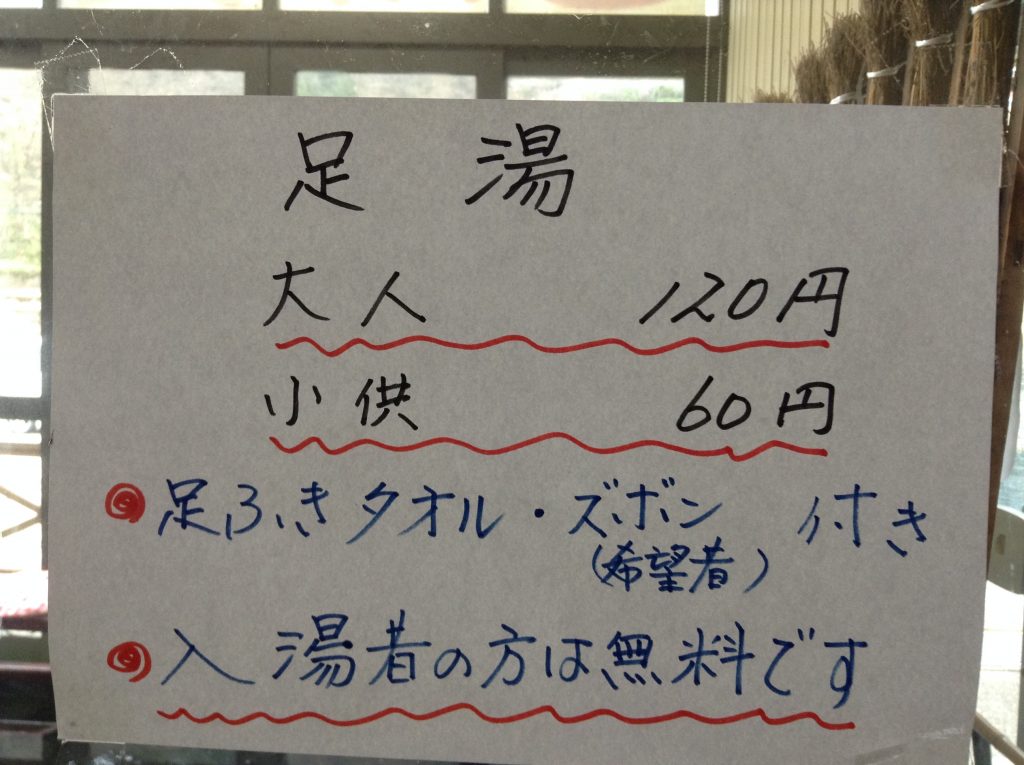 足湯
大人 120円
小供 60円
足ふきタオル・ズボン 付き
(希望者)
入湯者の方は無料です